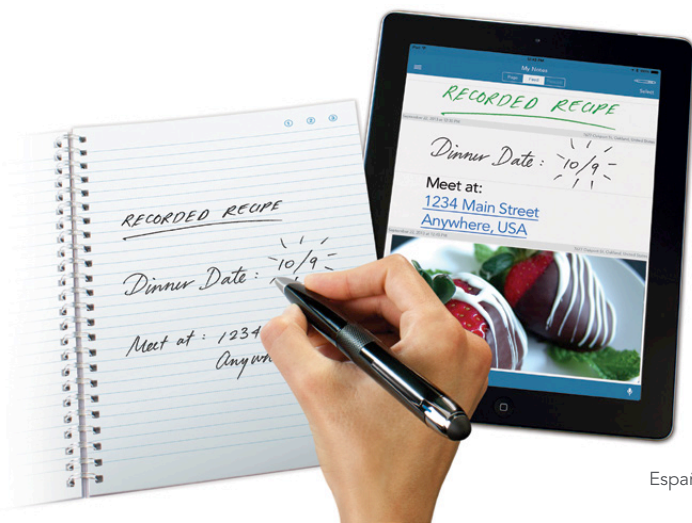 ① ② ③
RECORDED RECIPE
Dinner Date: 10/9
Meet at: 1234
My Notes
Page Feed
Select
RECORDED RECIPE
Dinner Date: 10/9
Meet at:
1234 Main Street
Anywhere, USA